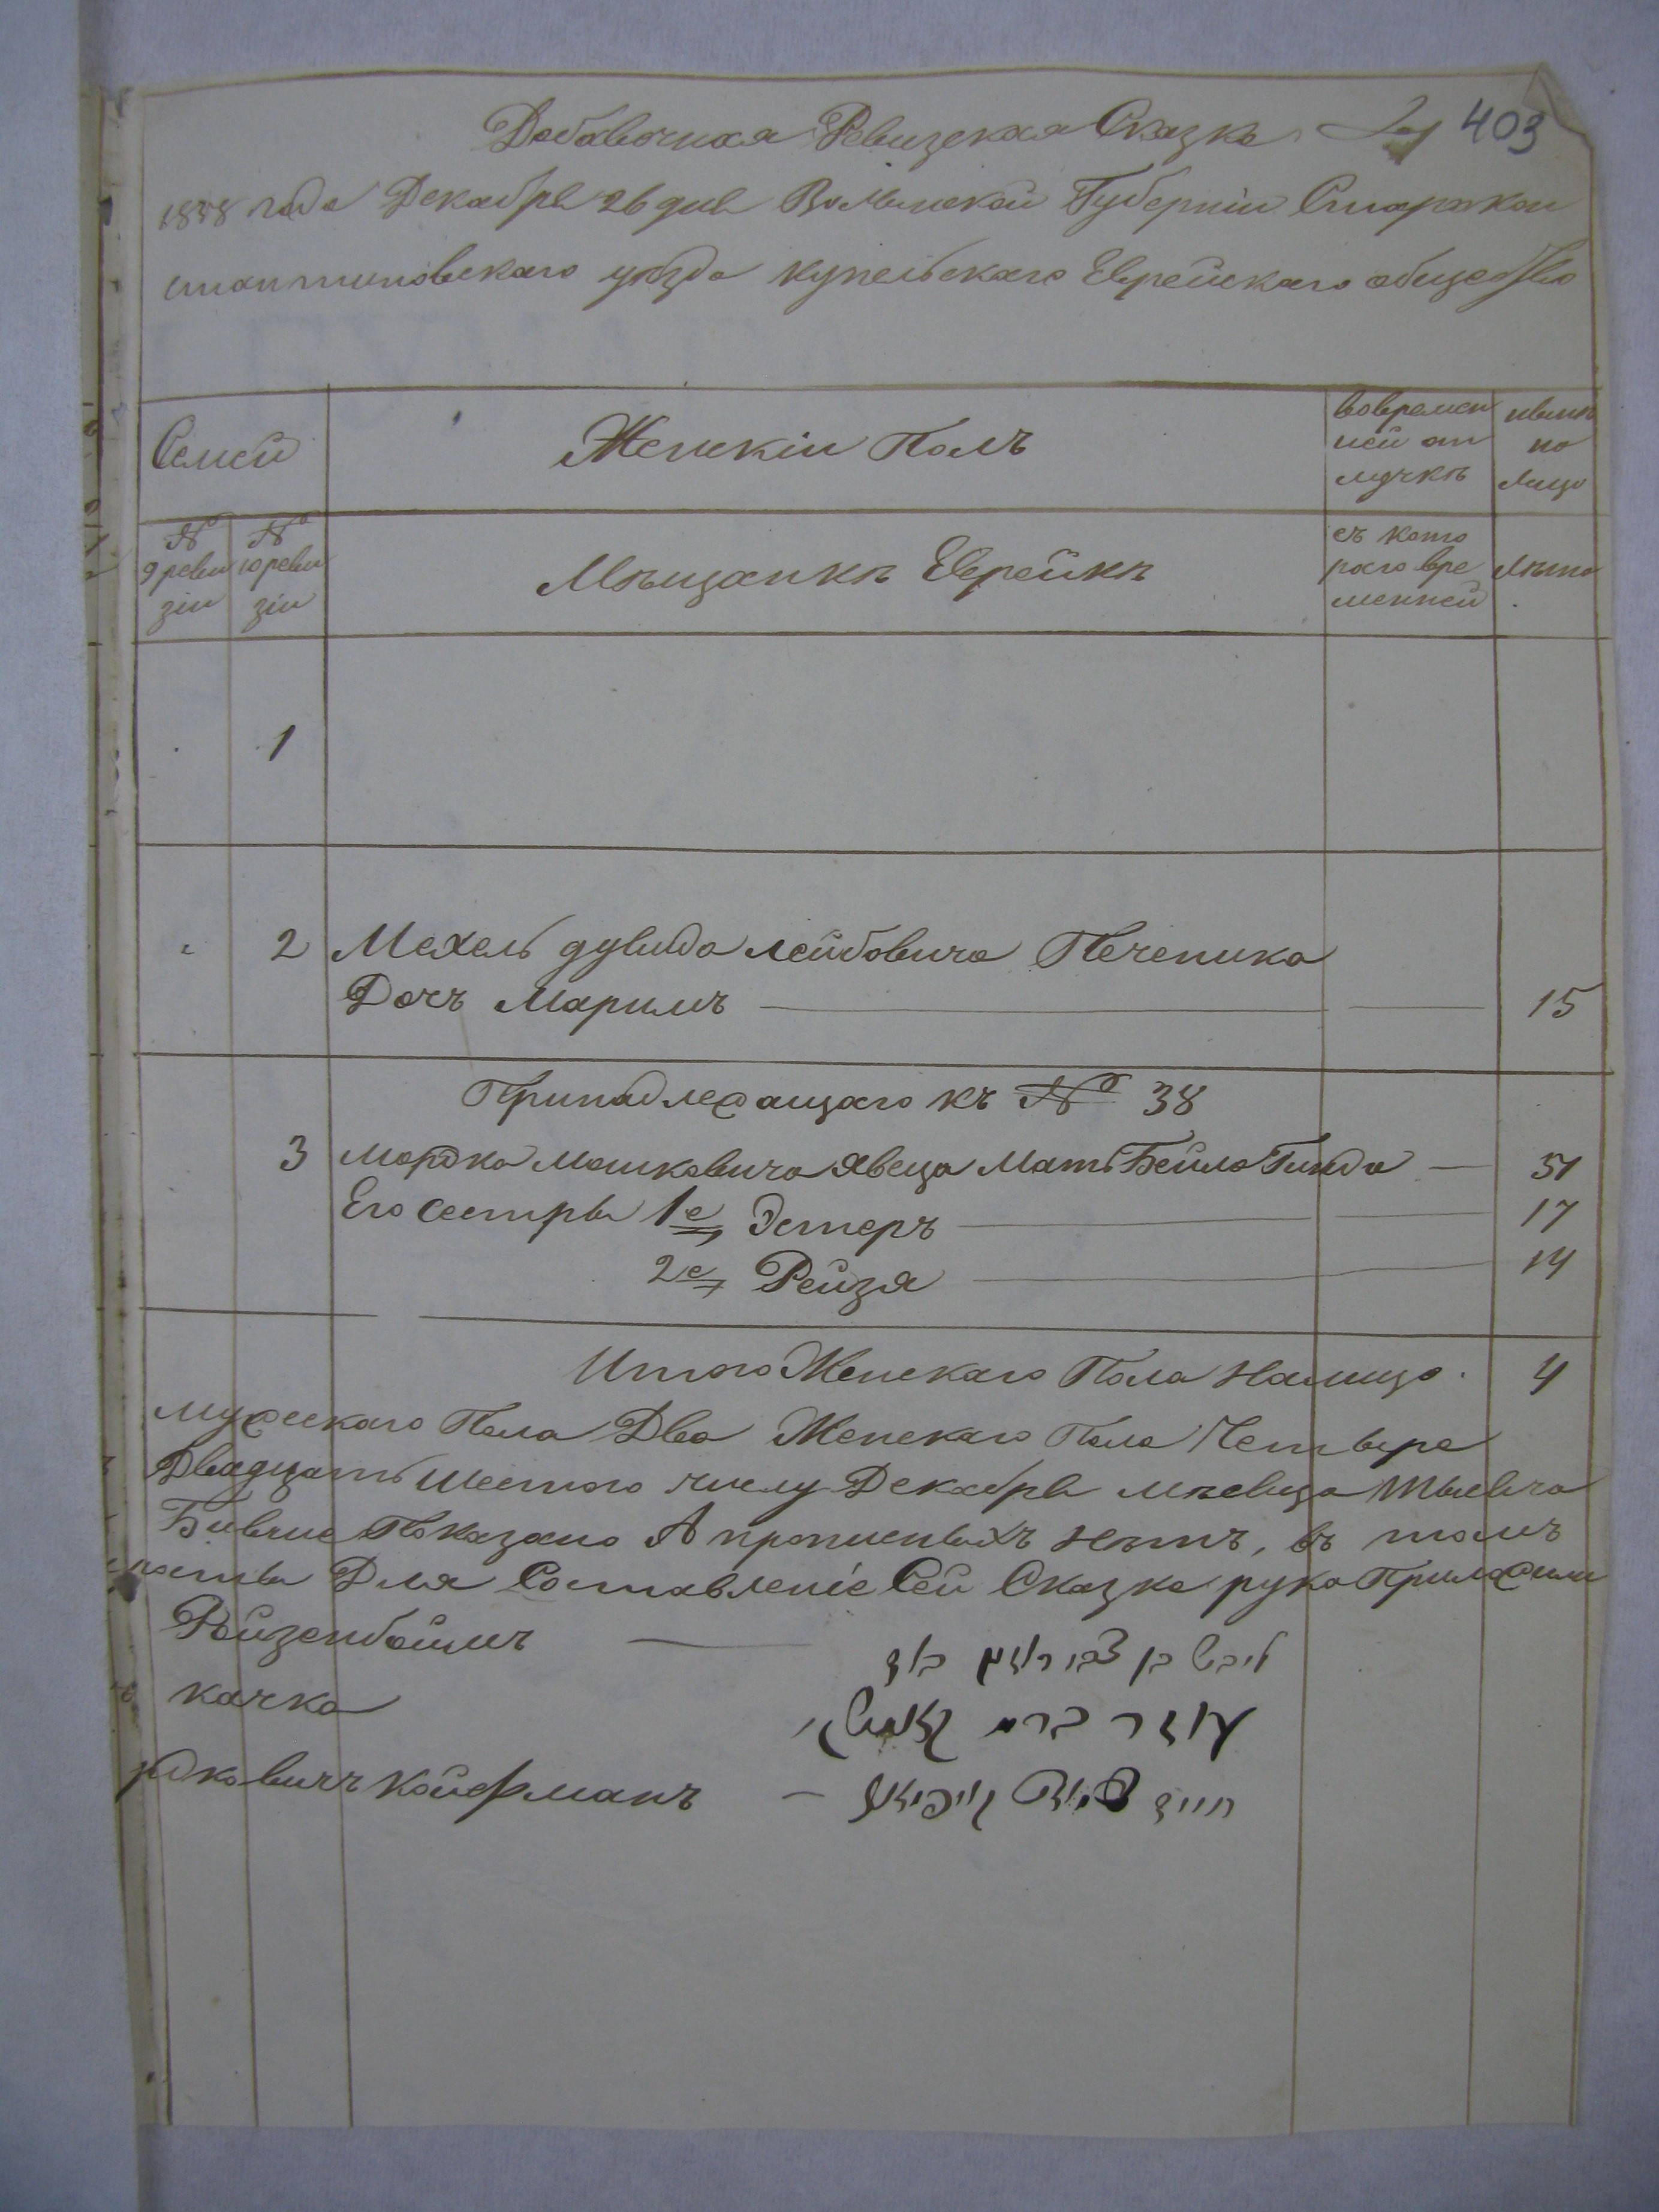 Добавочная Ревизская Сказка 403
1858 года Декабря 26 дня Волынской Губернии Старокон
стантиновскаго уѣзда купельскаго Еврейскаго общества
Семей
Женскiи Полъ
вовремен
ной от
лучкѣ
ныне
на
лицо
№
9 реви
зiи
№
10 реви
зiи
Мѣщанкѣ Еврейкѣ
съ кото
раго вре
менней
Лѣта
1
2 Мехель дувида Лейбовича Печеника
Дочъ Маримъ 15
Принадлежащаго къ № 38
3 Мордка Мошковича Явеца Мать Бейла Гинда 51
Его Сестры 1е Эстеръ 17
2е Рейзя 14
Итого Женскаго Пола Налицо 4
мужескаго Пола Два Женскаго Пола Четыре
Двадцать Шестого числу Декабря мѣсяца Тысяча
Показано А прописныхъ нѣтъ, въ томъ
Для Составленiе Сей Сказке рука Приложили
Ройзенбоймъ
качка
ковичъ Койфманъ